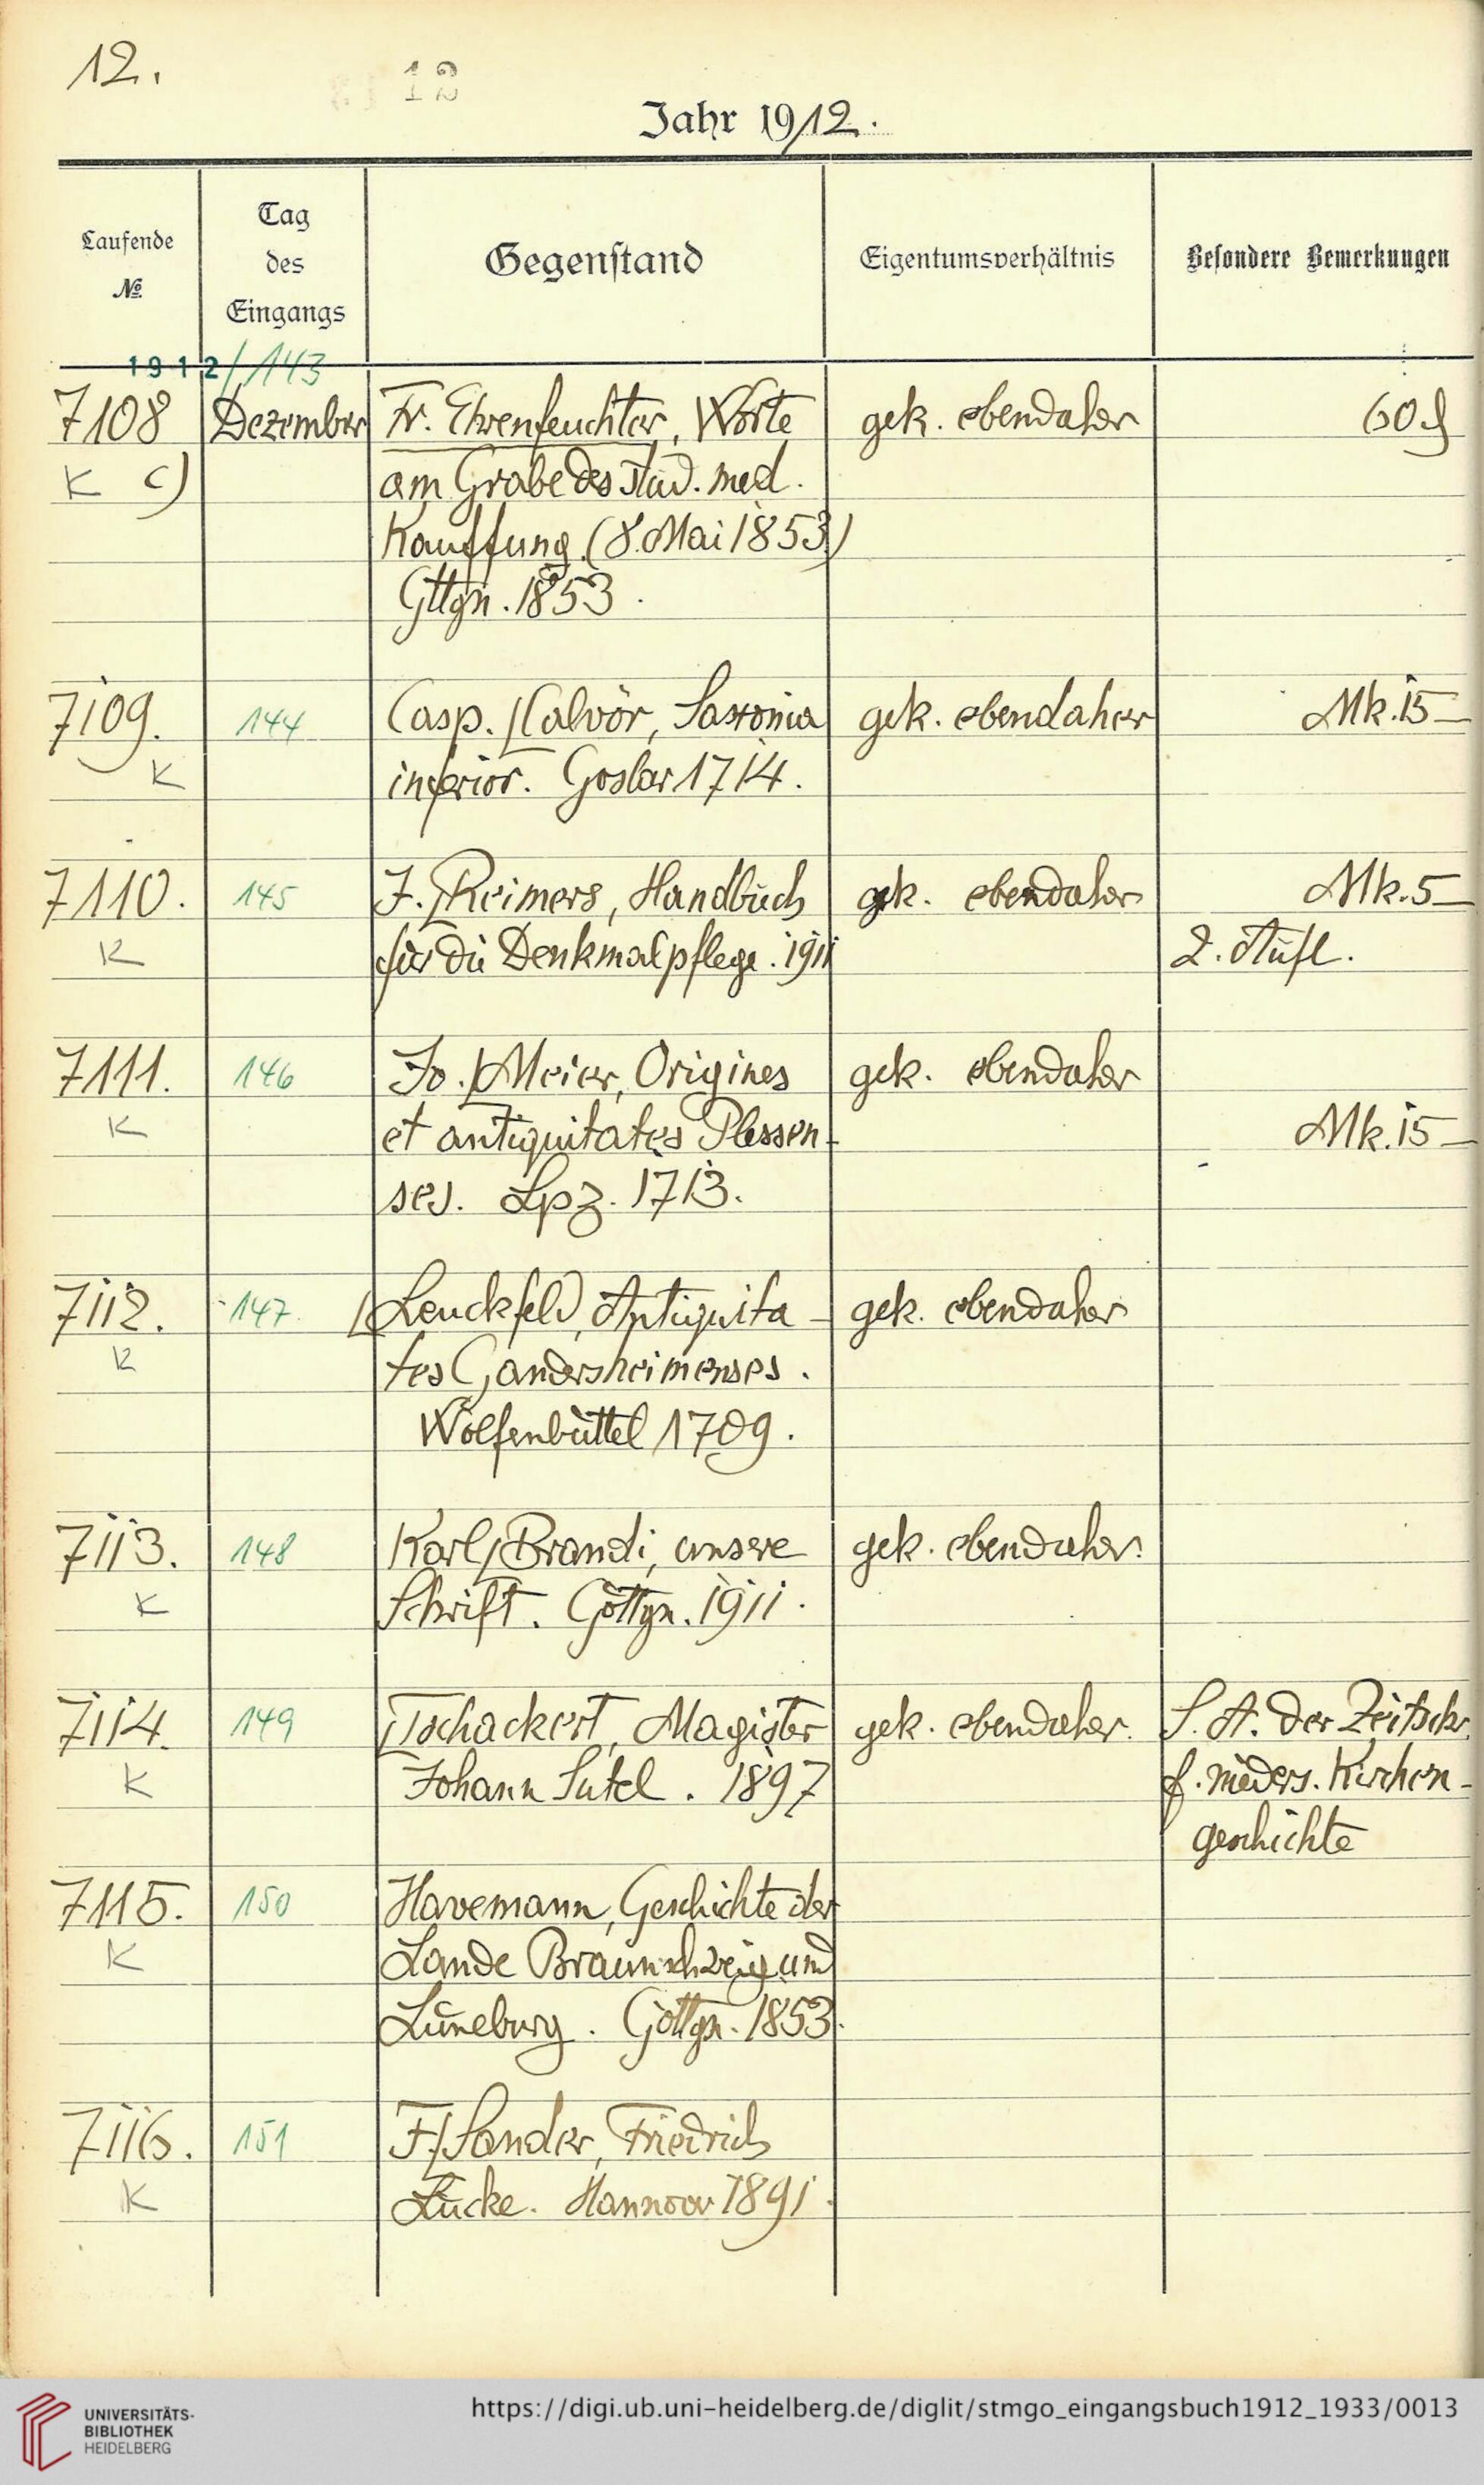 12.
12
Jahr 1912.
Laufende
№
Tag
des
Eingangs
Gegenstand
Eigentumsverhältnis
Besondere Bemerkungen
1912/143
7108 Dezember Fr. Ehrenfeuchter, Worte gek. ebendaher 60 ₰
K c) am Grabe des stud. med.
Kauffung (8. Mai 1853)
Gttgn. 1853.
7109. 144 Casp. Calvör, Saxonia gek. ebendaher Mk. 15 –
K inferior. Goslar 1714.
7110. 145 J. Reimers, Handbuch gek. ebendaher Mk. 5 –
K für die Denkmalpflege. 1911 2. Aufl.
7111. 146 Jo. Meier, Origines gek. ebendaher
K et antiquitates Plessen- Mk. 15 –
ses. Lpz. 1713.
7112. 147 Leuckfeld, Antiquita- gek. ebendaher
K tes Gandersheimenses.
Wolfenbüttel 1709.
7113. 148 Karl Brandi, unsere gek. ebendaher.
K Schrift. Göttgn. 1911.
7114. 149 Tschackert, Magister gek. ebendaher. S. A. der Zeitschr.
K Johann Sutel. 1897 f. nieders. Kirchen-
geschichte
7115. 150 Havemann, Geschichte der
K Lande Braunschweig und
Lüneburg. Göttgn. 1853.
7116. 151 F. Sander, Friedrich
K Lücke. Hannover 1891.
UNIVERSITÄTS-
BIBLIOTHEK
HEIDELBERG
https://digi.ub.uni-heidelberg.de/diglit/stmgo_eingangsbuch1912_1933/0013